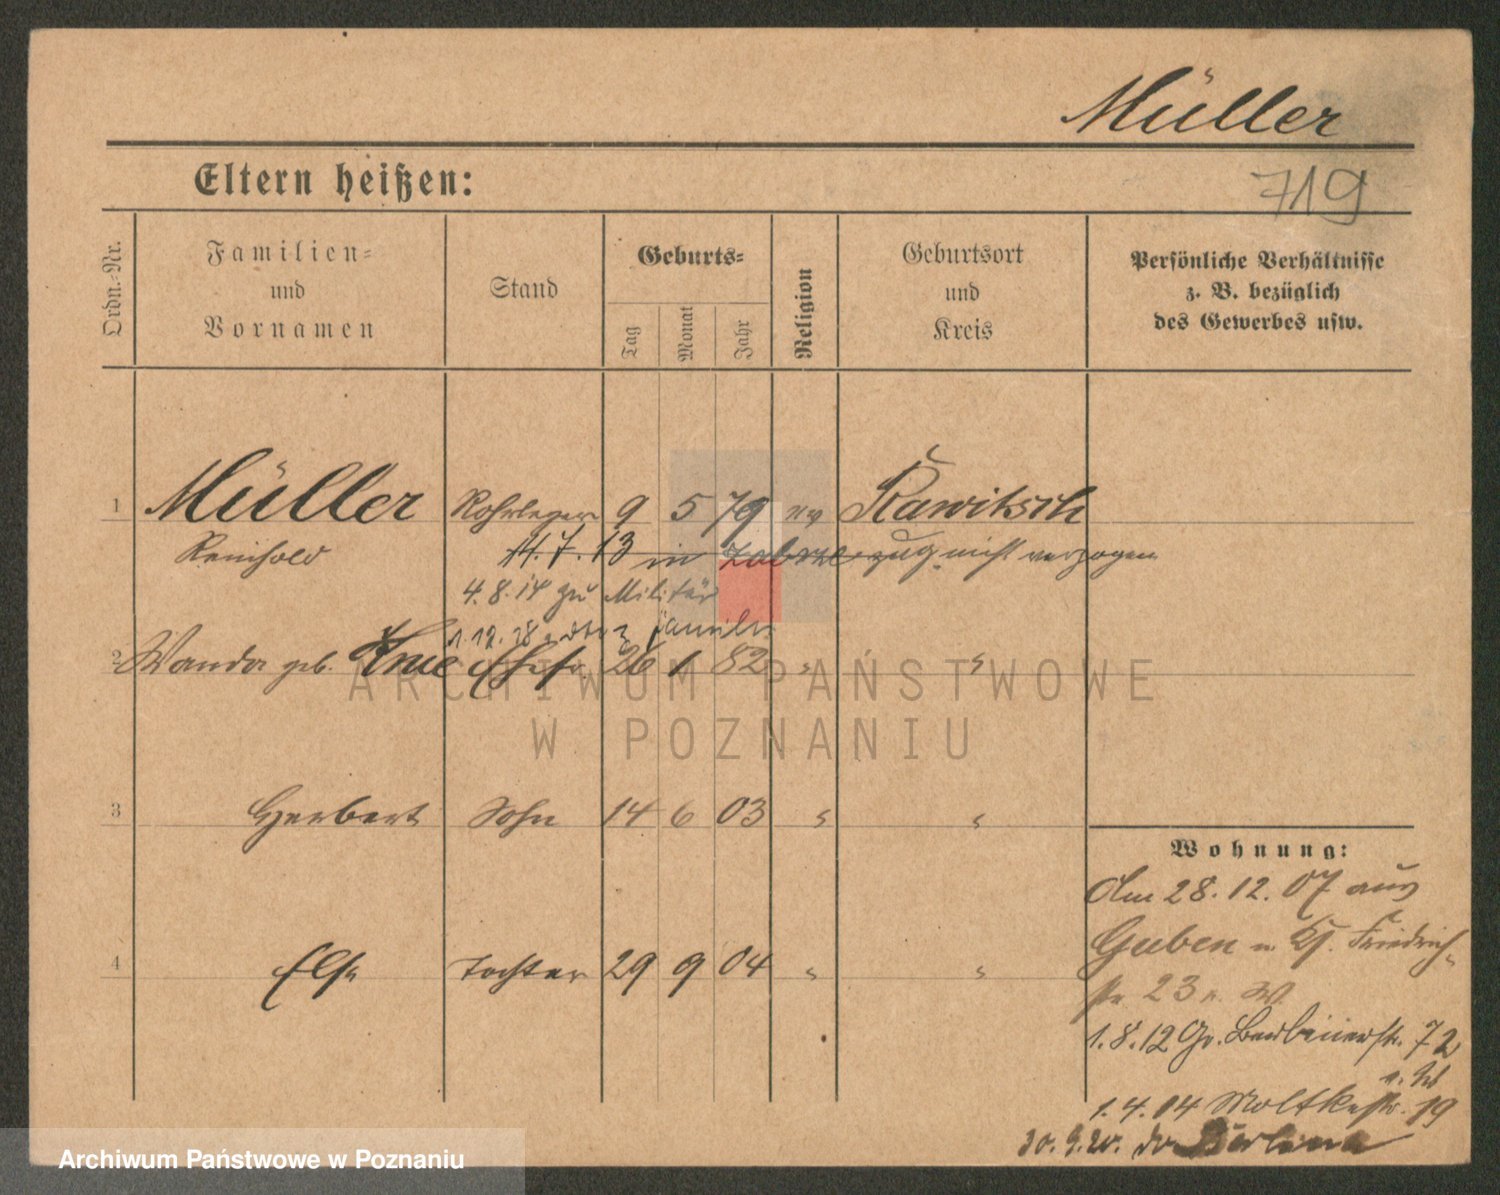 Müller
719
Eltern heißen:
Ordn.-Nr.
Familien=
und
Vornamen
Stand
Geburts=
Tag
Monat
Jahr
Religion
Geburtsort
und
Kreis
Persönliche Verhältnisse
z. B. bezüglich
des Gewerbes usw.
1 Müller Rohrleger 9 5 79 Rawitsch
Reinhold 11.7.13 in Zabrze zug. nicht verzogen
4.8.14 zu Militär
1.12.18
2 Wanda geb. Ehefr. 26 1 82 " "
3 Herbert Sohn 14 6 03 " "
4 Else Tochter 29 9 04 " "
Wohnung:
Am 28.12.07 aus
Guben n. Friedrich-
str 23
1.8.12 Gr. Berlinerstr. 72
1.4.14 Moltkestr. 19
30.9.20.
ARCHIWUM PAŃSTWOWE
W POZNANIU
Archiwum Państwowe w Poznaniu